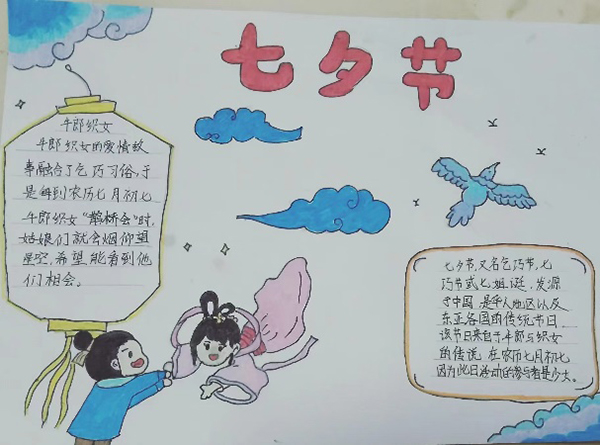 七夕节
牛郎织女
牛郎织女的爱情故
事融合了乞巧习俗,于
是每到农历七月初七
牛郎织女“鹊桥会”时,
姑娘们就会烟仰望
星空,希望能看到他
们相会。
七夕节,又名乞巧节,七
巧节或七姐诞,发源
于中国,是华人地区以及
东亚各国的传统节日
该节日来自于牛郎与织女
的传说,在农历七月初七
因为此日活动的参与者是少女。